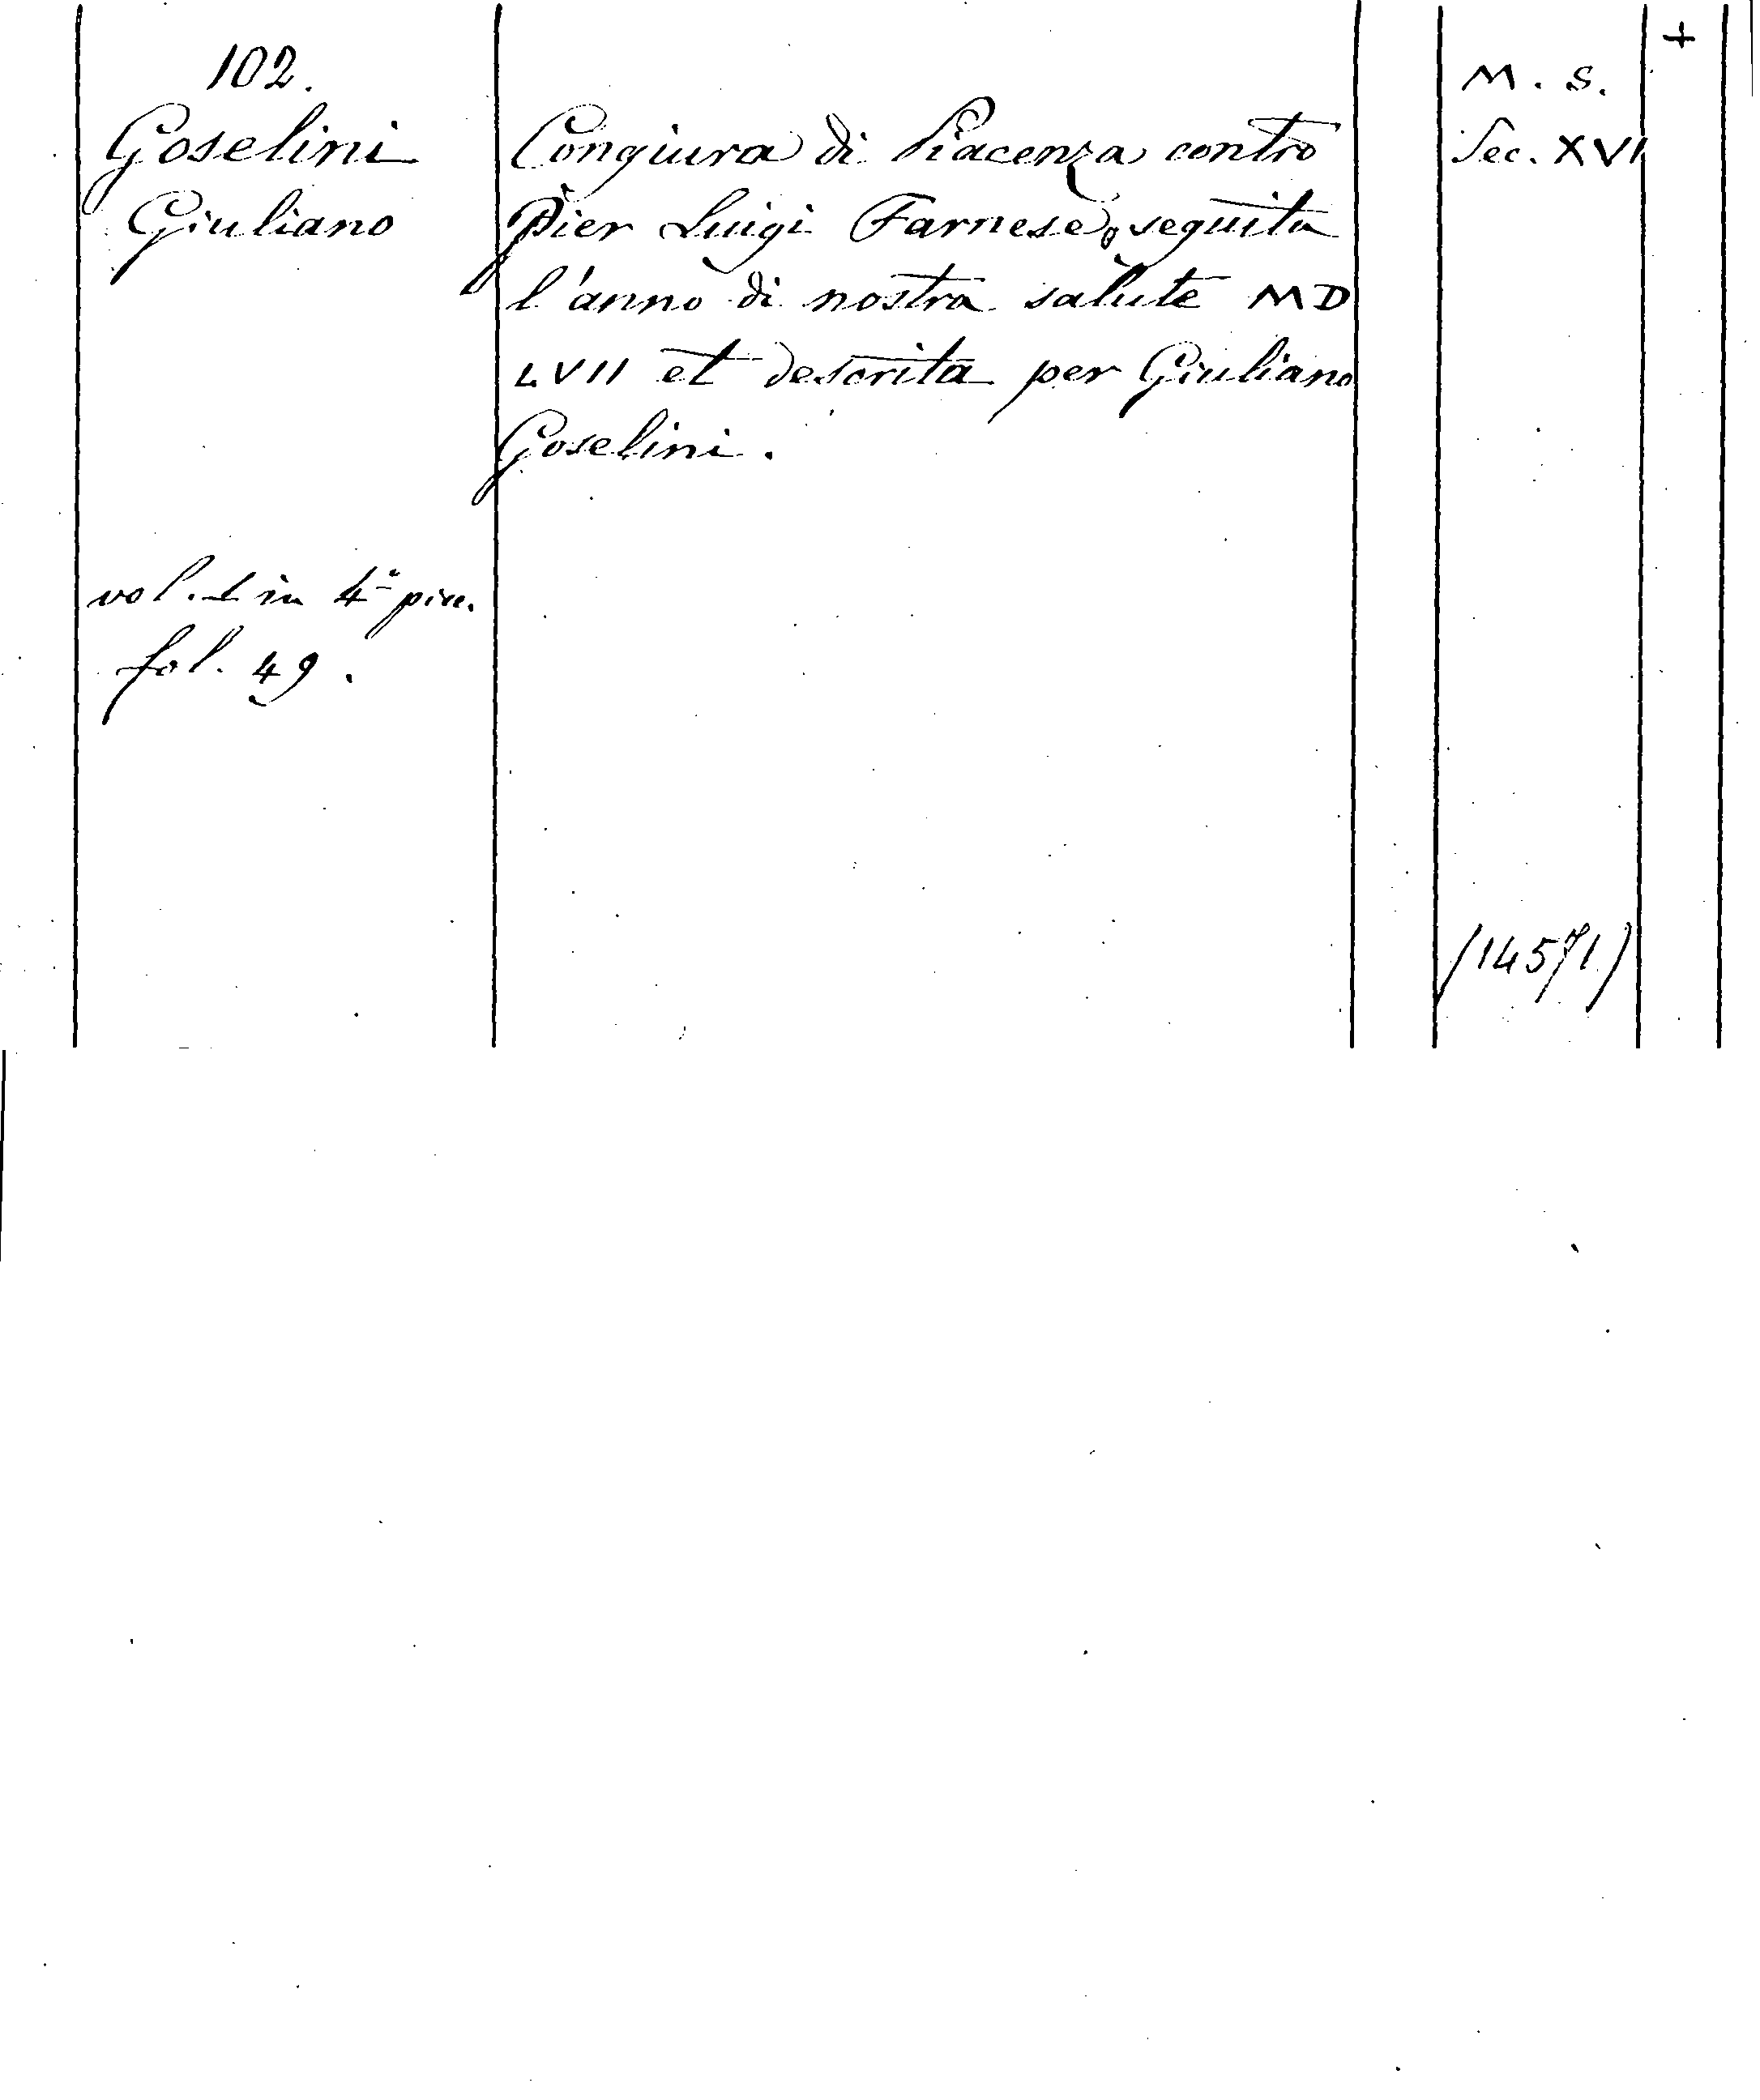 102.
Goselini
Giuliano
vol. 1 in 4º picc.
fol. 49.
Congiura di Piacenza contro
Pier Luigi Farnese, seguita
l'anno di nostra salute MD
LVII et descrita per Giuliano
Goselini.
M. S.
Sec. XVI
(14571)
+